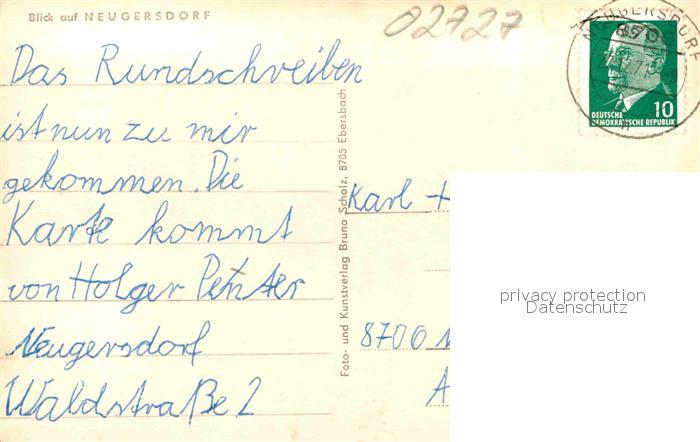 Blick auf NEUGERSDORF
02727
NEUGERSDORF
DEUTSCHE
DEMOKRATISCHE REPUBLIK
10
Das Rundschreiben
ist nun zu mir
gekommen. Die
Karte kommt
von Holger
Neugersdorf
Waldstraße 2
Foto- und Kunstverlag Bruno Scholz, 8705 Ebersbach
Karl
8700
privacy protection
Datenschutz